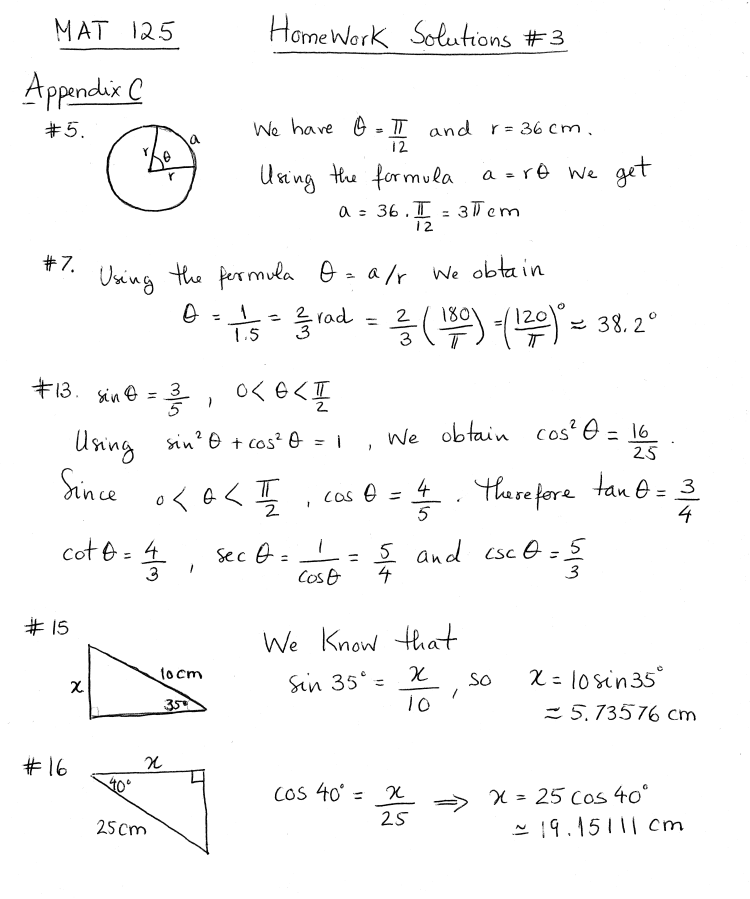 MAT 125 HomeWork Solutions #3
Appendix C
#5. r θ r a We have θ = π/12 and r = 36 cm.
Using the formula a = rθ we get
a = 36 . π/12 = 3π cm
#7. Using the formula θ = a/r we obtain
θ = 1/1.5 = 2/3 rad = 2/3 (180/π) = (120/π)° ≃ 38.2°
#13. sin θ = 3/5 , 0 < θ < π/2
Using sin² θ + cos² θ = 1 , We obtain cos² θ = 16/25 .
Since 0 < θ < π/2 , cos θ = 4/5 . Therefore tan θ = 3/4
cot θ = 4/3 , sec θ = 1/cos θ = 5/4 and csc θ = 5/3
#15 We Know that
x 10cm 35° sin 35° = x/10 , so x = 10 sin 35°
≃ 5.73576 cm
#16 x 40° 25cm cos 40° = x/25 ⟹ x = 25 cos 40°
≃ 19.15111 cm